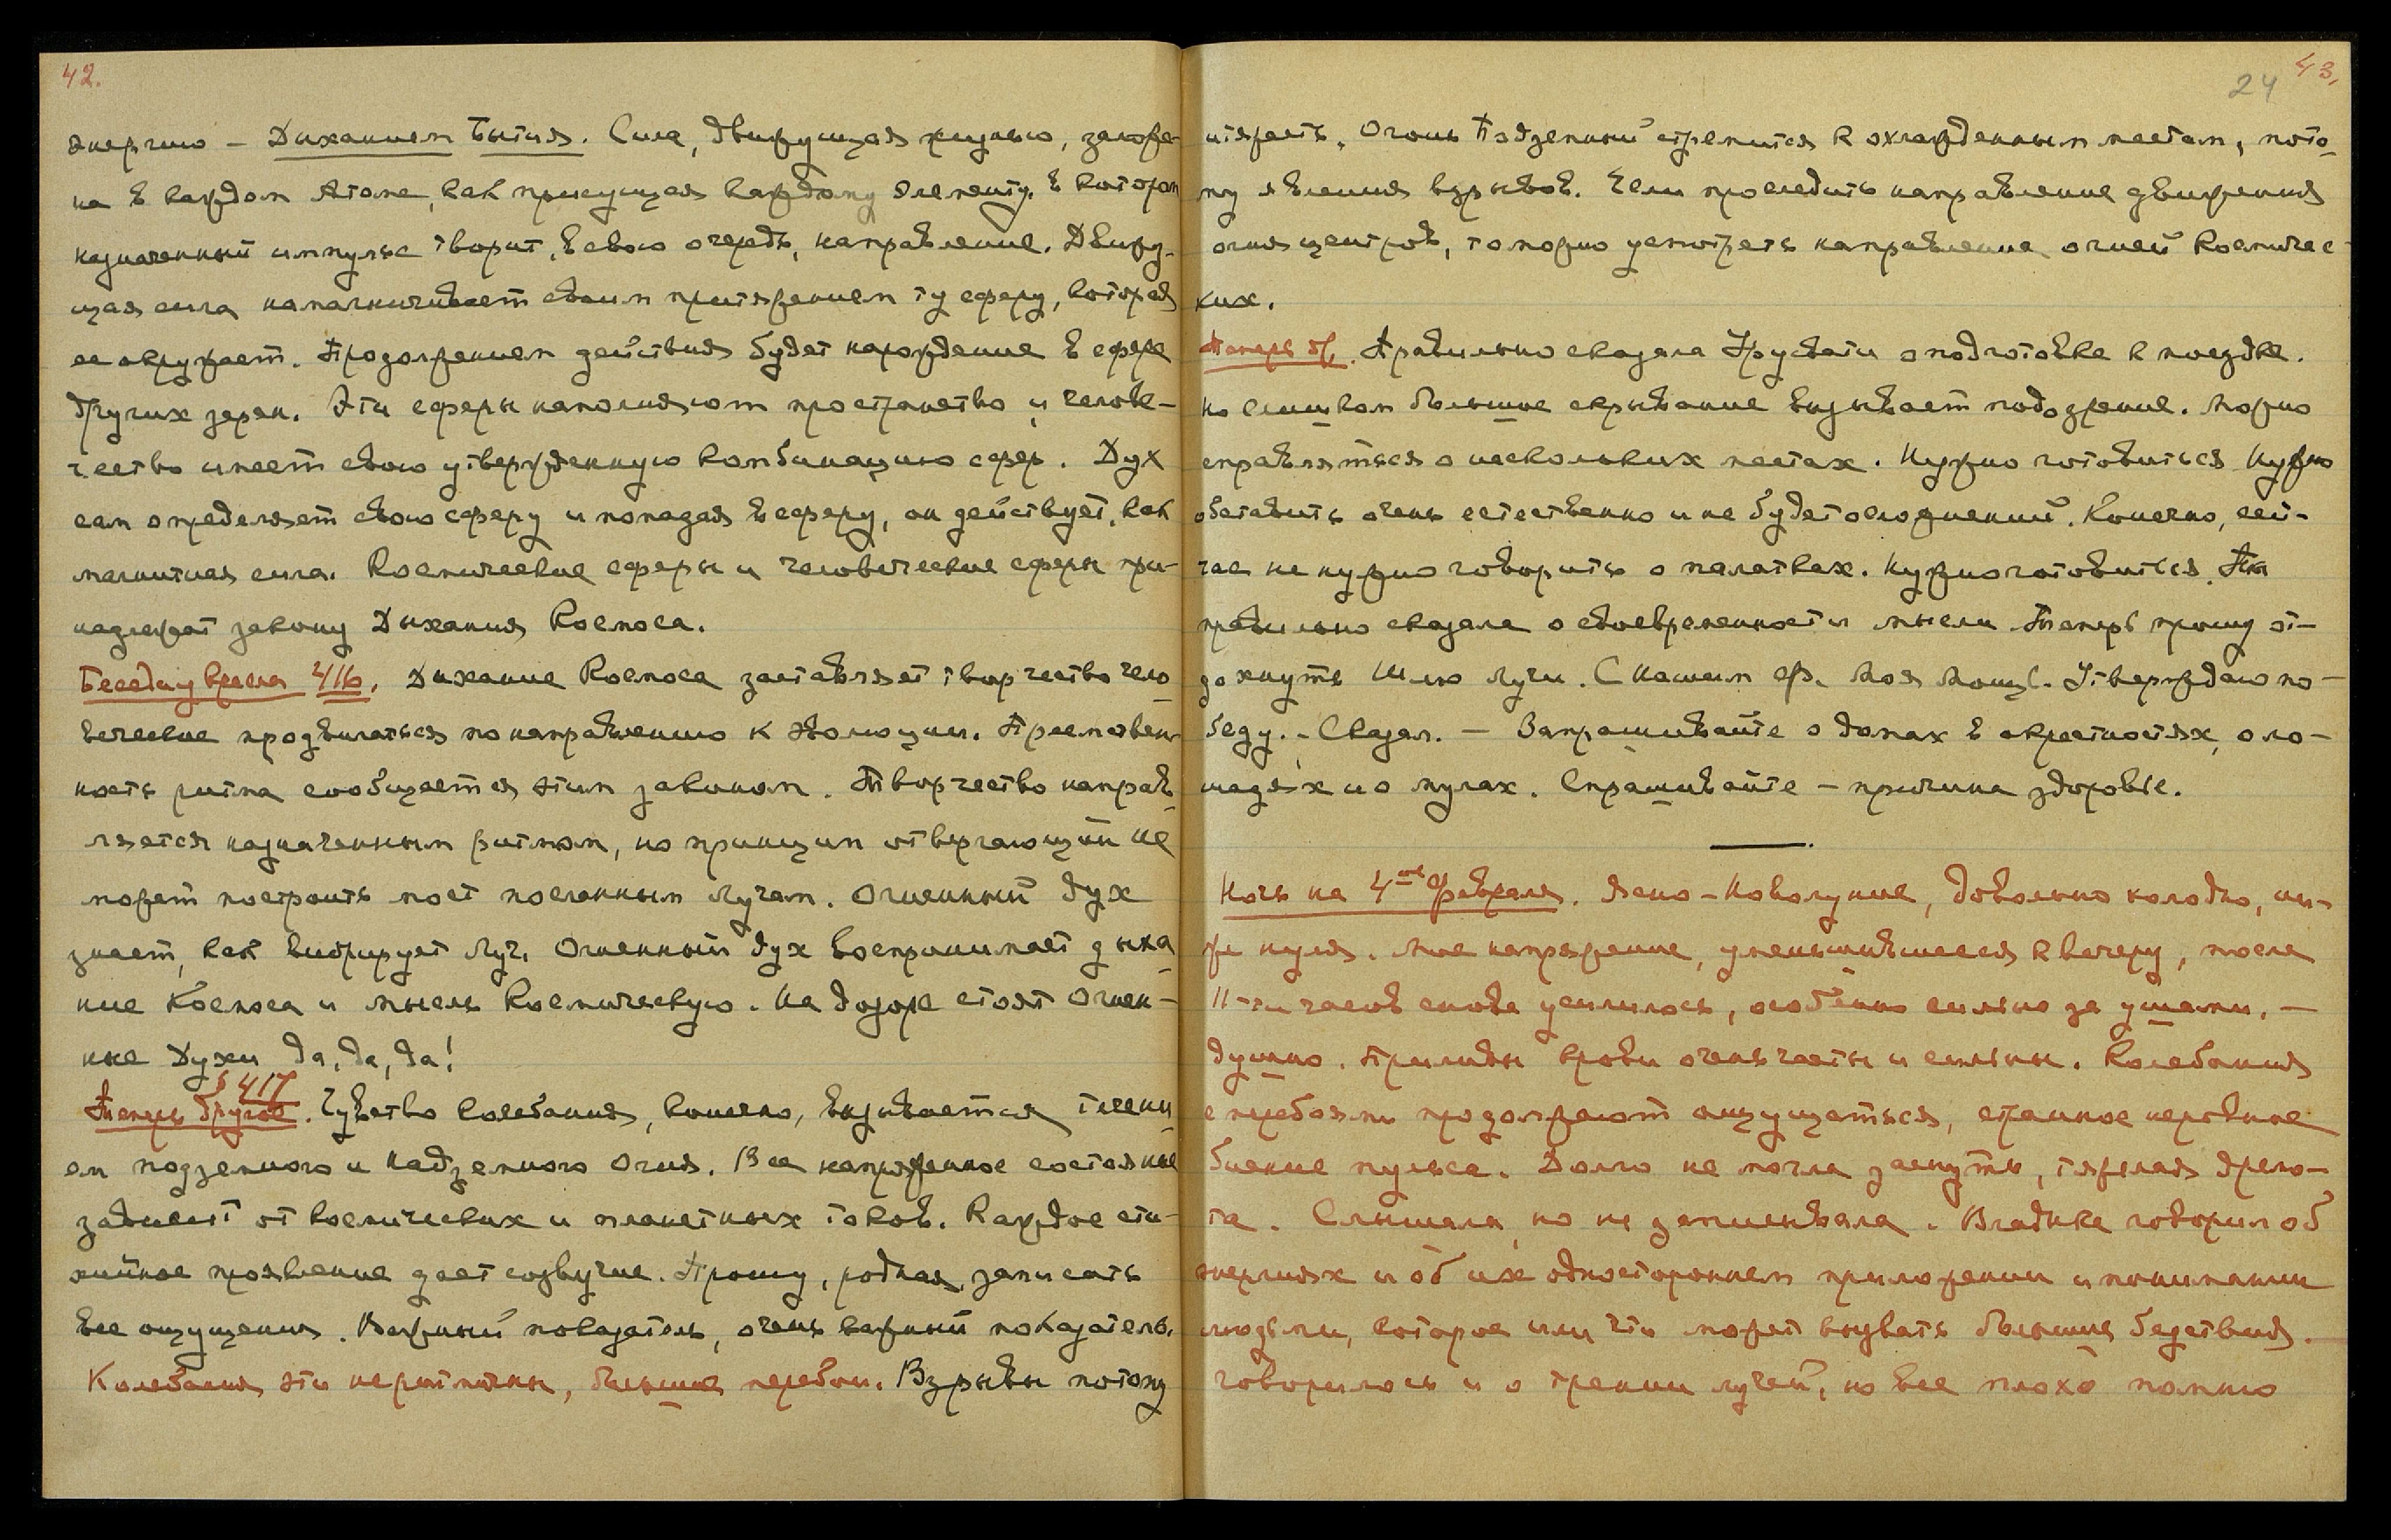 42.
энергию – Дыханием Бытия. Сила, движущая жизнью, заложе-
на в каждом Атоме, как присущая каждому элементу. В котором
назначенный импульс творит, в свою очередь, направление. Движу-
щая сила намагничивает своим притяжением ту сферу, которая
ее окружает. Продолжением действия будет нарождение в сфере
других зерен. Эти сферы наполняют пространство, и челове-
чество имеет свою утвержденную комбинацию сфер. Дух
сам определяет свою сферу и попадая в сферу, он действует, как
магнитная сила. Космические сферы и человеческие сферы при-
надлежат закону Дыхания Космоса.
Беседа у кресла 416. Дыхание Космоса заставляет творчество чело-
веческое продвигаться по направлению к эволюции. Преемствен-
ность ритма сообщается этим законом. Творчество направ-
ляется назначенным ритмом, но принцип отвергающий не
может построить мост посланным Лучам. Огненный дух
знает, как вибрирует Луч. Огненный дух воспринимает дыха-
ние Космоса и мысль Космическую. На дозоре стоят Огнен-
ные Духи да, да, да!
§ 417
Теперь другое. Чувство колебания, конечно, вызывается течени-
ем подземного и надземного Огня. Все напряженное состояние
зависит от космических и планетных токов. Каждое сти-
хийное проявление дает созвучие. Прошу, родная, записать
все ощущения. Важный показатель, очень важный показатель.
Колебания эти неритмичны, большие перебои. Взрывы потому
24 43.
итяжеть. Огонь Подземный стремится к охлажденным местам, пото-
му явления взрывов. Если проследить направление движения
огня центров, то можно усмотреть направление огней Космичес-
ких.
Теперь др. Правильно сказала Урусвати о подготовке к поездке.
Но слишком большое скрывание вызывает подозрение. Можно
справляться о нескольких местах. Нужно готовиться. Нужно
обставить очень естественно и не будет осложнений. Конечно, сей-
час не нужно говорить о палатках. Нужно готовиться.
правильно сказала о своевременности мысли. Теперь прошу от-
дохнуть Шлю Лучи. С нашим Моя Мощь. Утверждаю по-
беду. – Сказал. – Запрашивайте о домах в окрестностях, о ло-
шадях и о мулах. Спрашивайте – причина здоровье.
Ночь на 4ое февраля. Ясно – Новолуние, довольно холодно, ни-
же нуля. Мое напряжение, уменьшившееся к вечеру, после
11-ти часов снова усилилось, особенно сильно за ушами, –
душно. Приливы крови очень часты и сильны. Колебания
с перебоями продолжают ощущаться, странное неровное
биение пульса. Долго не могла заснуть, тяжелая дремо-
та. Слышала, но не записывала. Владыка говорил об
энергиях и об их одностороннем приложении и понимании
людьми, которое или что может вызвать большие бедствия.
говорилось и о трении лучей, но все плохо помню